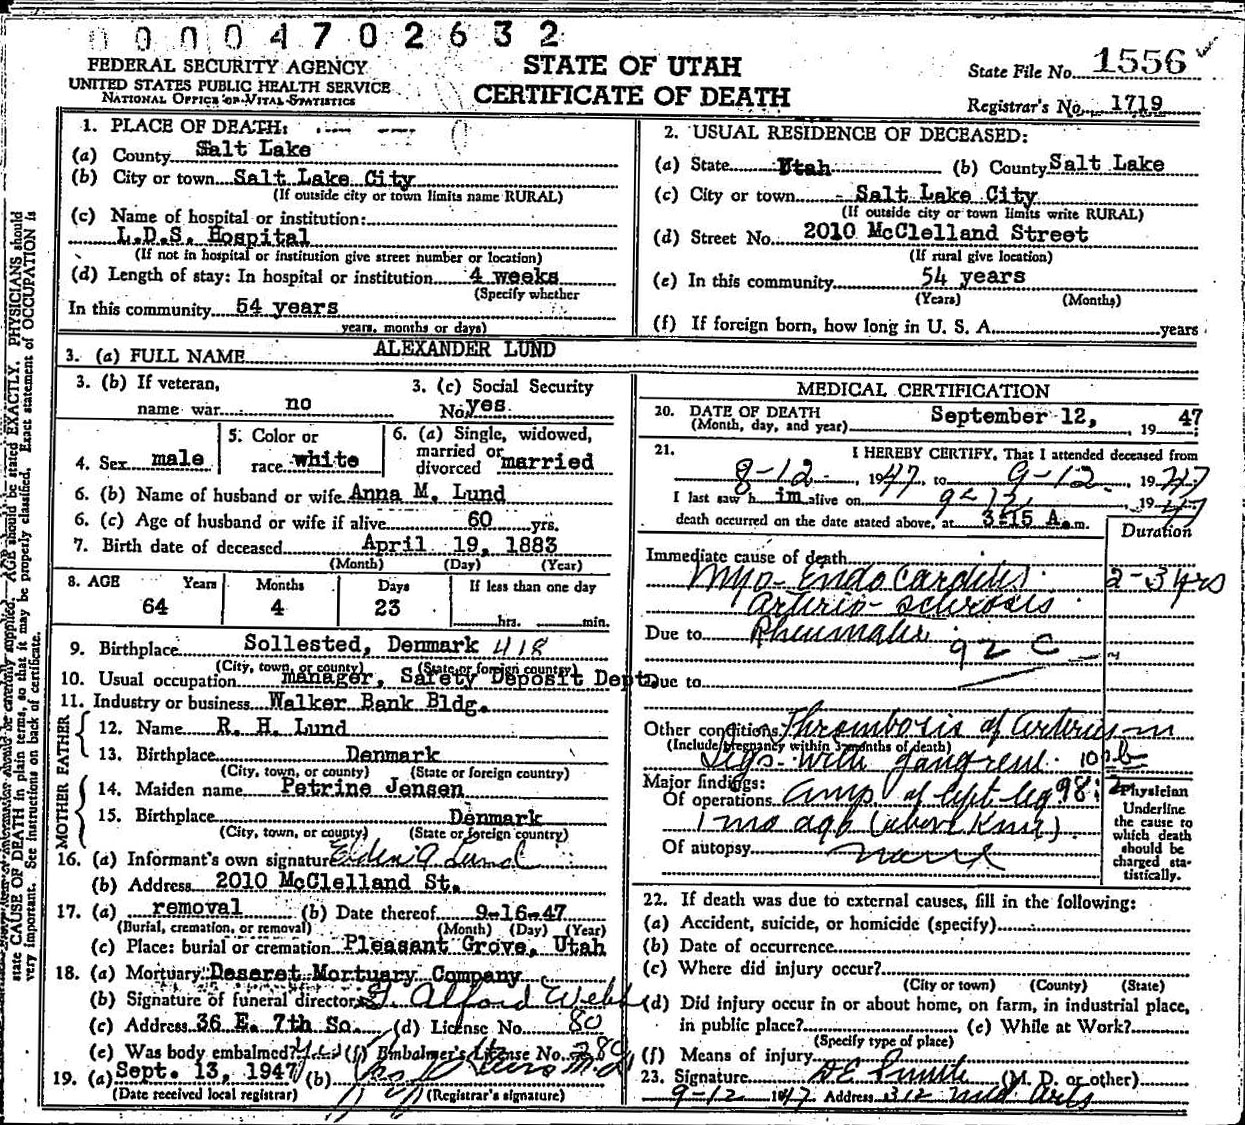 00004702632
FEDERAL SECURITY AGENCY
UNITED STATES PUBLIC HEALTH SERVICE
NATIONAL OFFICE OF VITAL STATISTICS
STATE OF UTAH
CERTIFICATE OF DEATH
State File No. 1556
Registrar's No. 1719
1. PLACE OF DEATH:
(a) County Salt Lake
(b) City or town Salt Lake City
(If outside city or town limits name RURAL)
(c) Name of hospital or institution:
L.D.S. Hospital
(If not in hospital or institution give street number or location)
(d) Length of stay: In hospital or institution 4 weeks
(Specify whether
In this community 54 years
years, months or days)
2. USUAL RESIDENCE OF DECEASED:
(a) State Utah (b) County Salt Lake
(c) City or town Salt Lake City
(If outside city or town limits write RURAL)
(d) Street No. 2010 McClelland Street
(If rural give location)
(e) In this community 54 years
(Years) (Months)
(f) If foreign born, how long in U. S. A. years
3. (a) FULL NAME ALEXANDER LUND
3. (b) If veteran,
name war no
3. (c) Social Security
No. yes
4. Sex male
5. Color or
race white
6. (a) Single, widowed,
married or
divorced married
6. (b) Name of husband or wife Anna M. Lund
6. (c) Age of husband or wife if alive 60 yrs.
7. Birth date of deceased April 19, 1883
(Month) (Day) (Year)
8. AGE Years Months Days If less than one day
64 4 23 hrs. min.
9. Birthplace Sollested, Denmark 418
(City, town, or county) (State or foreign country)
10. Usual occupation manager, Safety Deposit Dept.
11. Industry or business Walker Bank Bldg.
FATHER
12. Name R. H. Lund
13. Birthplace Denmark
(City, town, or county) (State or foreign country)
MOTHER
14. Maiden name Petrine Jensen
15. Birthplace Denmark
(City, town, or county) (State or foreign country)
16. (a) Informant's own signature Elden A Lund
(b) Address 2010 McClelland St.
17. (a) removal (b) Date thereof 9-16-47
(Burial, cremation, or removal) (Month) (Day) (Year)
(c) Place: burial or cremation Pleasant Grove, Utah
18. (a) Mortuary: Deseret Mortuary Company
(b) Signature of funeral director Alford Webb
(c) Address 36 E. 7th So. (d) License No. 80
(e) Was body embalmed? yes (f) Embalmer's License No.
19. (a) Sept. 13, 1947 (b) M.D.
(Date received local registrar) (Registrar's signature)
MEDICAL CERTIFICATION
20. DATE OF DEATH
(Month, day, and year) September 12, 1947
21. I HEREBY CERTIFY, That I attended deceased from
8-12-, 1947, to 9-12, 1947
I last saw him alive on 9-12, 1947
death occurred on the date stated above, at 3-15 A.m.
Duration
Immediate cause of death
Myo-Endocarditis 2-3 yrs
Arterio-sclerosis
Due to Rheumatic 92 C
Due to
Other conditions Thrombosis of arteries in
(Include pregnancy within 3 months of death)
legs with gangrene
Major findings:
Of operations Amp. of left leg 98
1 mo ago (above knee)
Of autopsy none
Physician
Underline
the cause to
which death
should be
charged sta-
tistically.
22. If death was due to external causes, fill in the following:
(a) Accident, suicide, or homicide (specify)
(b) Date of occurrence
(c) Where did injury occur?
(City or town) (County) (State)
(d) Did injury occur in or about home, on farm, in industrial place,
in public place? (e) While at Work?
(Specify type of place)
(f) Means of injury
23. Signature (M. D. or other)
9-12 1947 Address 312 Med. Arts
AGE should be stated EXACTLY. PHYSICIANS should
state CAUSE OF DEATH in plain terms, so that it may be properly classified. Exact statement of OCCUPATION is
very important. See instructions on back of certificate.